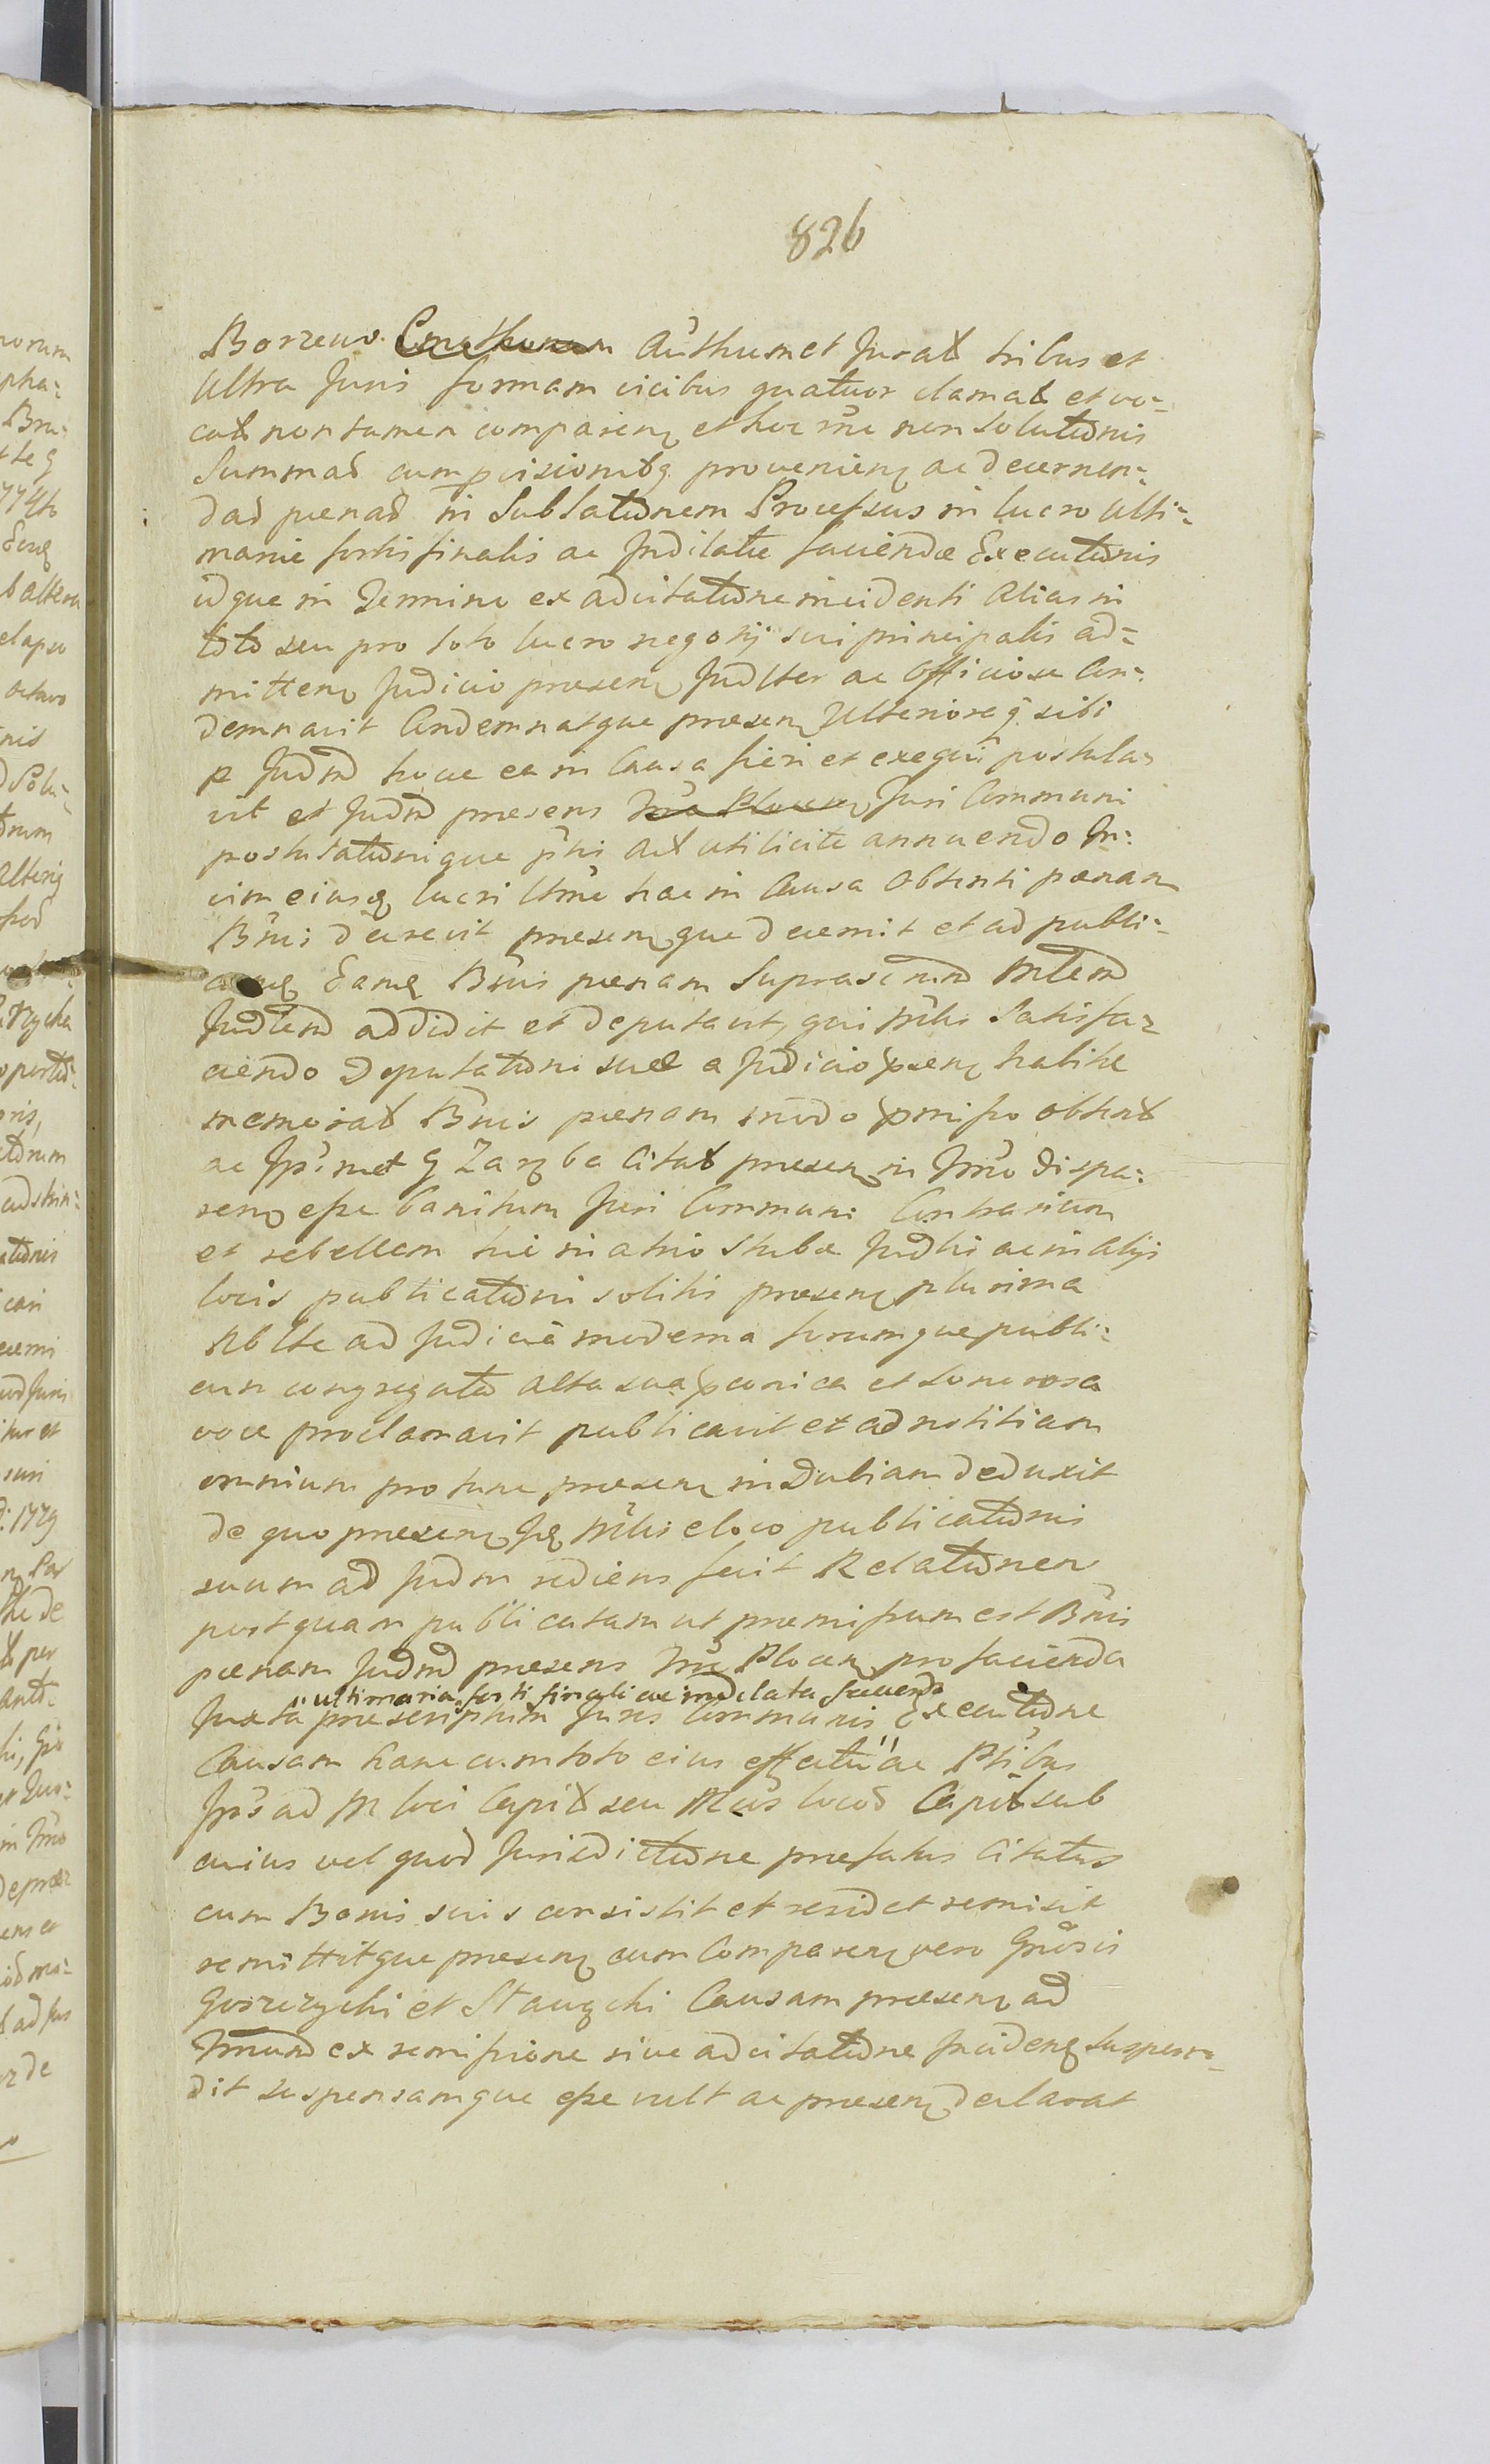 826
Borzews. Authum et Jurat tribus et
Ultra Juris formam vicibus quatuor clamat et vo=
cat non tamen comparen et hoc rne non solutionis
Summas cum pvisionibq provenien ac decernen=
das pœnas in Sublationem Processus in lucro Ulti=
mariæ fortis finalis ac Indilatæ faciendæ Executionis
idque in Termino ex adcitatione incidenti alias in
toto seu pro toto lucro negotij sui principalis ad=
mitten Judicio præsen Judlter ac Officiose Con=
demnavit Condemnatque præsen Ulterioreq sibi
p Judm hocce ea in Causa fieri et exequi postula=
vit et Judm præsens Juri Communi
postulationique pti Act utilicite annuendo In
vim eiusq lucri Ultmo hac in Causa Obtenti pœnam
Bnis decrevit præsenque decernit et ad publi=
canq Eanq Bnis pœnam Suprascrium Mlem
Judlem addidit et deputavit, qui Mlis Satisfa=
ciendo Deputationi suæ a Judicio pœsen habitæ
memorat Bnis pœnam modo pmisso obtent
ac Ipsimet G Zaręba Citat præsen in Tmo dispa=
ren esse banitum Juri Communi Contrarium
et rebellem hic in atrio Stubæ Judlis ac in alijs
locis publicationi solitis præsen plurima
Nblte ad Judicia moderna forumque publi=
cum congregata alta sua pconica et sonorosa
voce proclamavit publicavit et ad notitiam
omnium pro tunc præsen indubiam deduxit
de quo præsen Jq Mlis e loco publicationis
suum ad Judm rediens fecit Relationem
postquam publicatam ut præmissum est Bnis
pœnam Judm præsens Trre Plocen pro facienda
ultimaria forti finali ac indilata facienda
Juxta præscriptum Juris Communis Executione
Causam hanc cum toto eius effectu ac Ptibus
Ips ad M loci Capit seu Mcis locos Capit sub
cuius vel quod Jurisdictione præfatus Citatus
cum Bonis suis consistit et residet remisit
remittitque præsen cum Comparen vero Gnosis
Gorzrychi et Stawęchi Causam præsen ad
Tmum ex remissione sive adcitatione Inciden suspen=
dit suspensamque esse vult ac præsen declarat